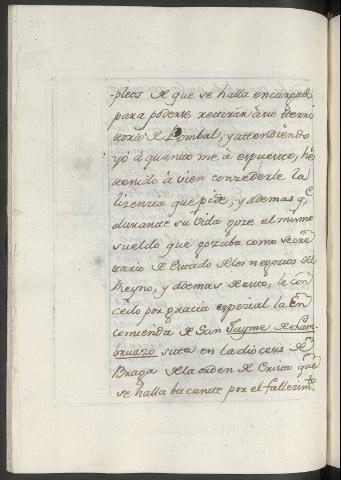 -pleos de que se halla encargado
para poderse retirar à su terri
ttorio de Pombal, y attendiendo
yó à quanto me à espuesto, hé
tenido à vien conzederle la
lizenzia que pide, y ademas q.e
durante su vida goze el mismo
sueldo que gozaba como secre
ttario de Estado de los negozios del
Reyno, y ademas de esto, le con
cedo por gracia espezial la En
comienda de San Tayme de
sita en la diocesis de
Braga de la orden de Cristo que
se halla bacante por el fallezim.to